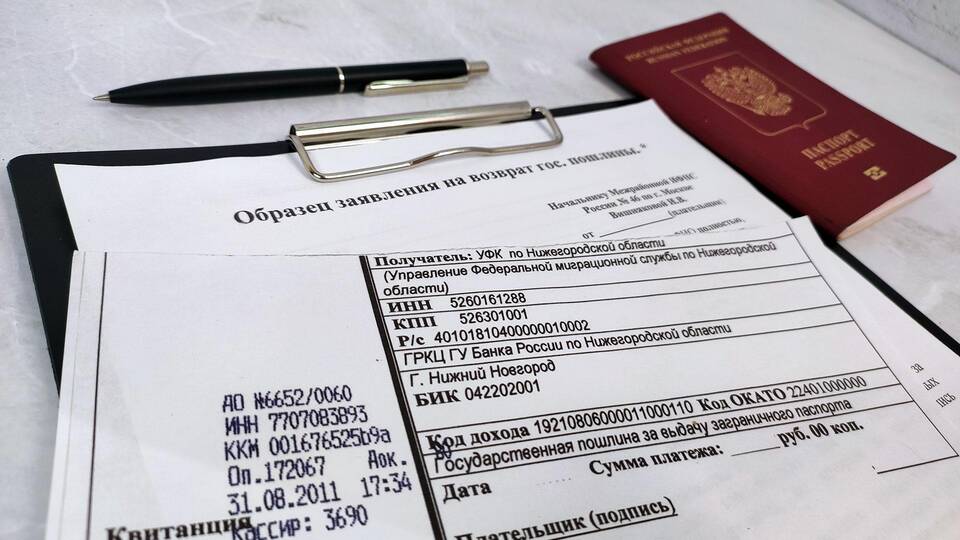 РОССИЙСКАЯ ФЕДЕРАЦИЯ
RUSSIAN FEDERATION
ПАСПОРТ
PASSPORT
Образец заявления на возврат гос. пошлины.*
Начальнику Межрайонной ИФНС
России № 46 по г. Москве
Вишнаковой Н.В.
(плательщик)
от
полностью,
Получатель: УФК по Нижегородской области
(Управление Федеральной миграционной службы по Нижегородской
области)
ИНН 5260161288
КПП 526301001
Р/с 40101810400000010002
ГРКЦ ГУ Банка России по Нижегородской области
Г. Нижний Новгород
БИК 042202001
Код дохода 19210806000011000110 Код ОКАТО 22401000000
Государственная пошлина за выдачу заграничного паспорта
Сумма платежа: ____ руб. 00 коп.
Дата
Плательщик (подпись)
ДО №6652/0060
ИНН 7707083893
ККМ 001676525b9a
Оп.172067 Док.
31.08.2011 17:34
Кассир: 3690
Квитанция
за